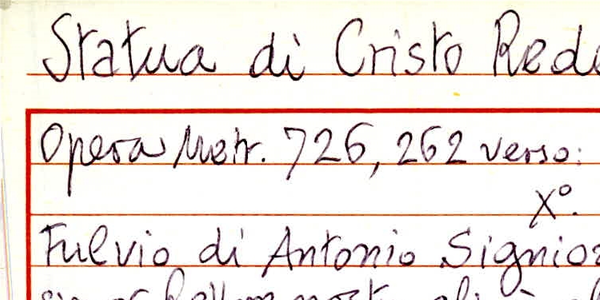 Statua di Cristo Rede
Opera Metr. 726, 262 verso:
Xº.
Fulvio di Antonio Signior